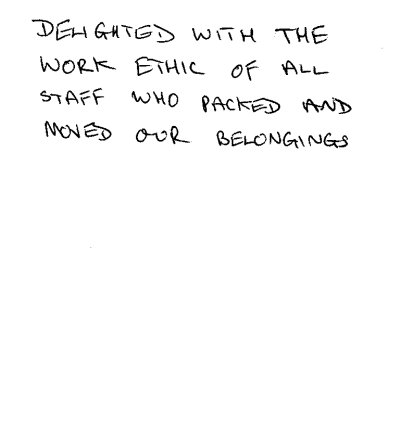 DELIGHTED WITH THE
WORK ETHIC OF ALL
STAFF WHO PACKED AND
MOVED OUR BELONGINGS